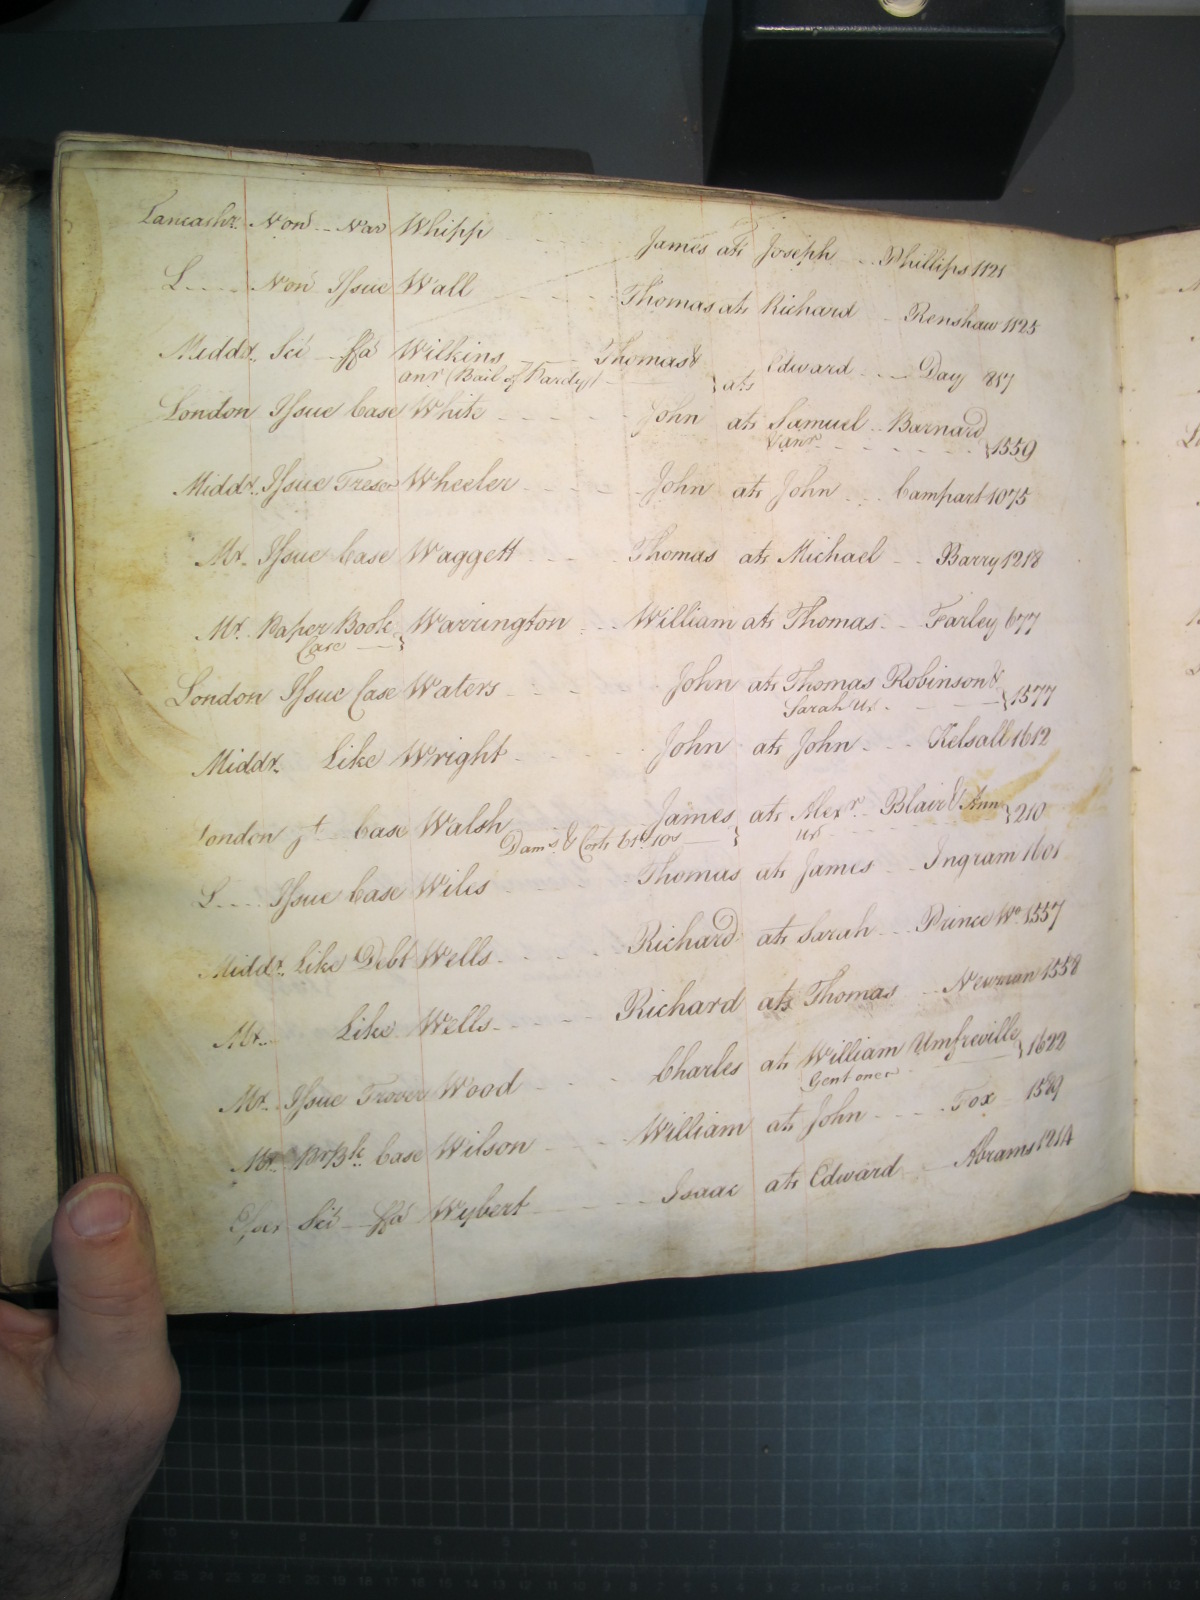 Lancashr. Nond -- Nar Whipp James ats Joseph -- Phillips 1121
L---- Nond Issue Wall ---- Thomas ats Richard -- Renshaw 1125
Middx. Sci -- ffa Wilkins ---- Thomas & } ats Edward ---- Day 857
anr (Bail of Pardy)
London Issue Case White ---- John ats Samuel -- Barnard
& anr ------ } 1559
Middx. Issue Treser Wheeler ---- John ats John --- Campart 1075
Mx. Issue Case Waggett ---- Thomas ats Michael -- Barry 1218
Mx. Paper Book } Warrington --- William ats Thomas -- Farley 677
Case ---
London Issue Case Waters ---- John ats Thomas Robinson &
Sarah Ux. ---- } 1577
Middx. Like Wright ---- John ats John --- Kelsall 1612
London jt -- Case Walsh James } ats Alexr. Blair & Ann } 210
Dams. & Costs 61 10s --- ux
L---- Issue Case Wiles ---- Thomas ats James -- Ingram 1601
Middx. Like Debt Wells ---- Richard ats Sarah -- Prince Wo. 1557
Mx. Like Wells ---- Richard ats Thomas -- Newman 1558
Mx. Issue Trover Wood ---- Charles ats William Umfreville } 1622
Gent one &c
Mx. Case Wilson ---- William ats John ---- Fox 1589
Sci -- ffa Wybert ---- Isaac ats Edward -- Abrams 1214